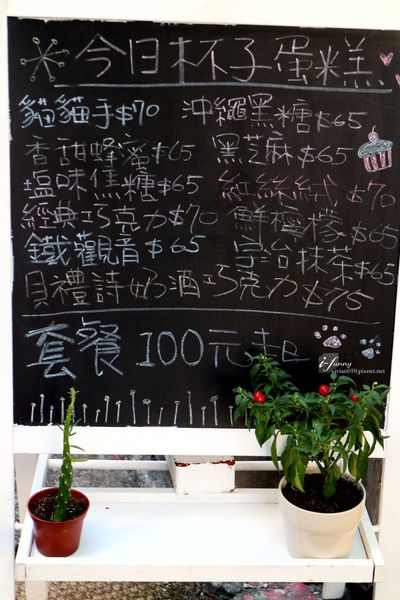 今日杯子蛋糕
貓貓手$70 沖繩黑糖$65
香甜蜂蜜$65 黑芝麻$65
塩味焦糖$65 紅絲絨$70
經典巧克力$70 鮮檸檬$65
鐵觀音$65 宇治抹茶$65
貝禮詩奶酒巧克力$75
套餐100元起
i-funny
vivian010.pixnet.net